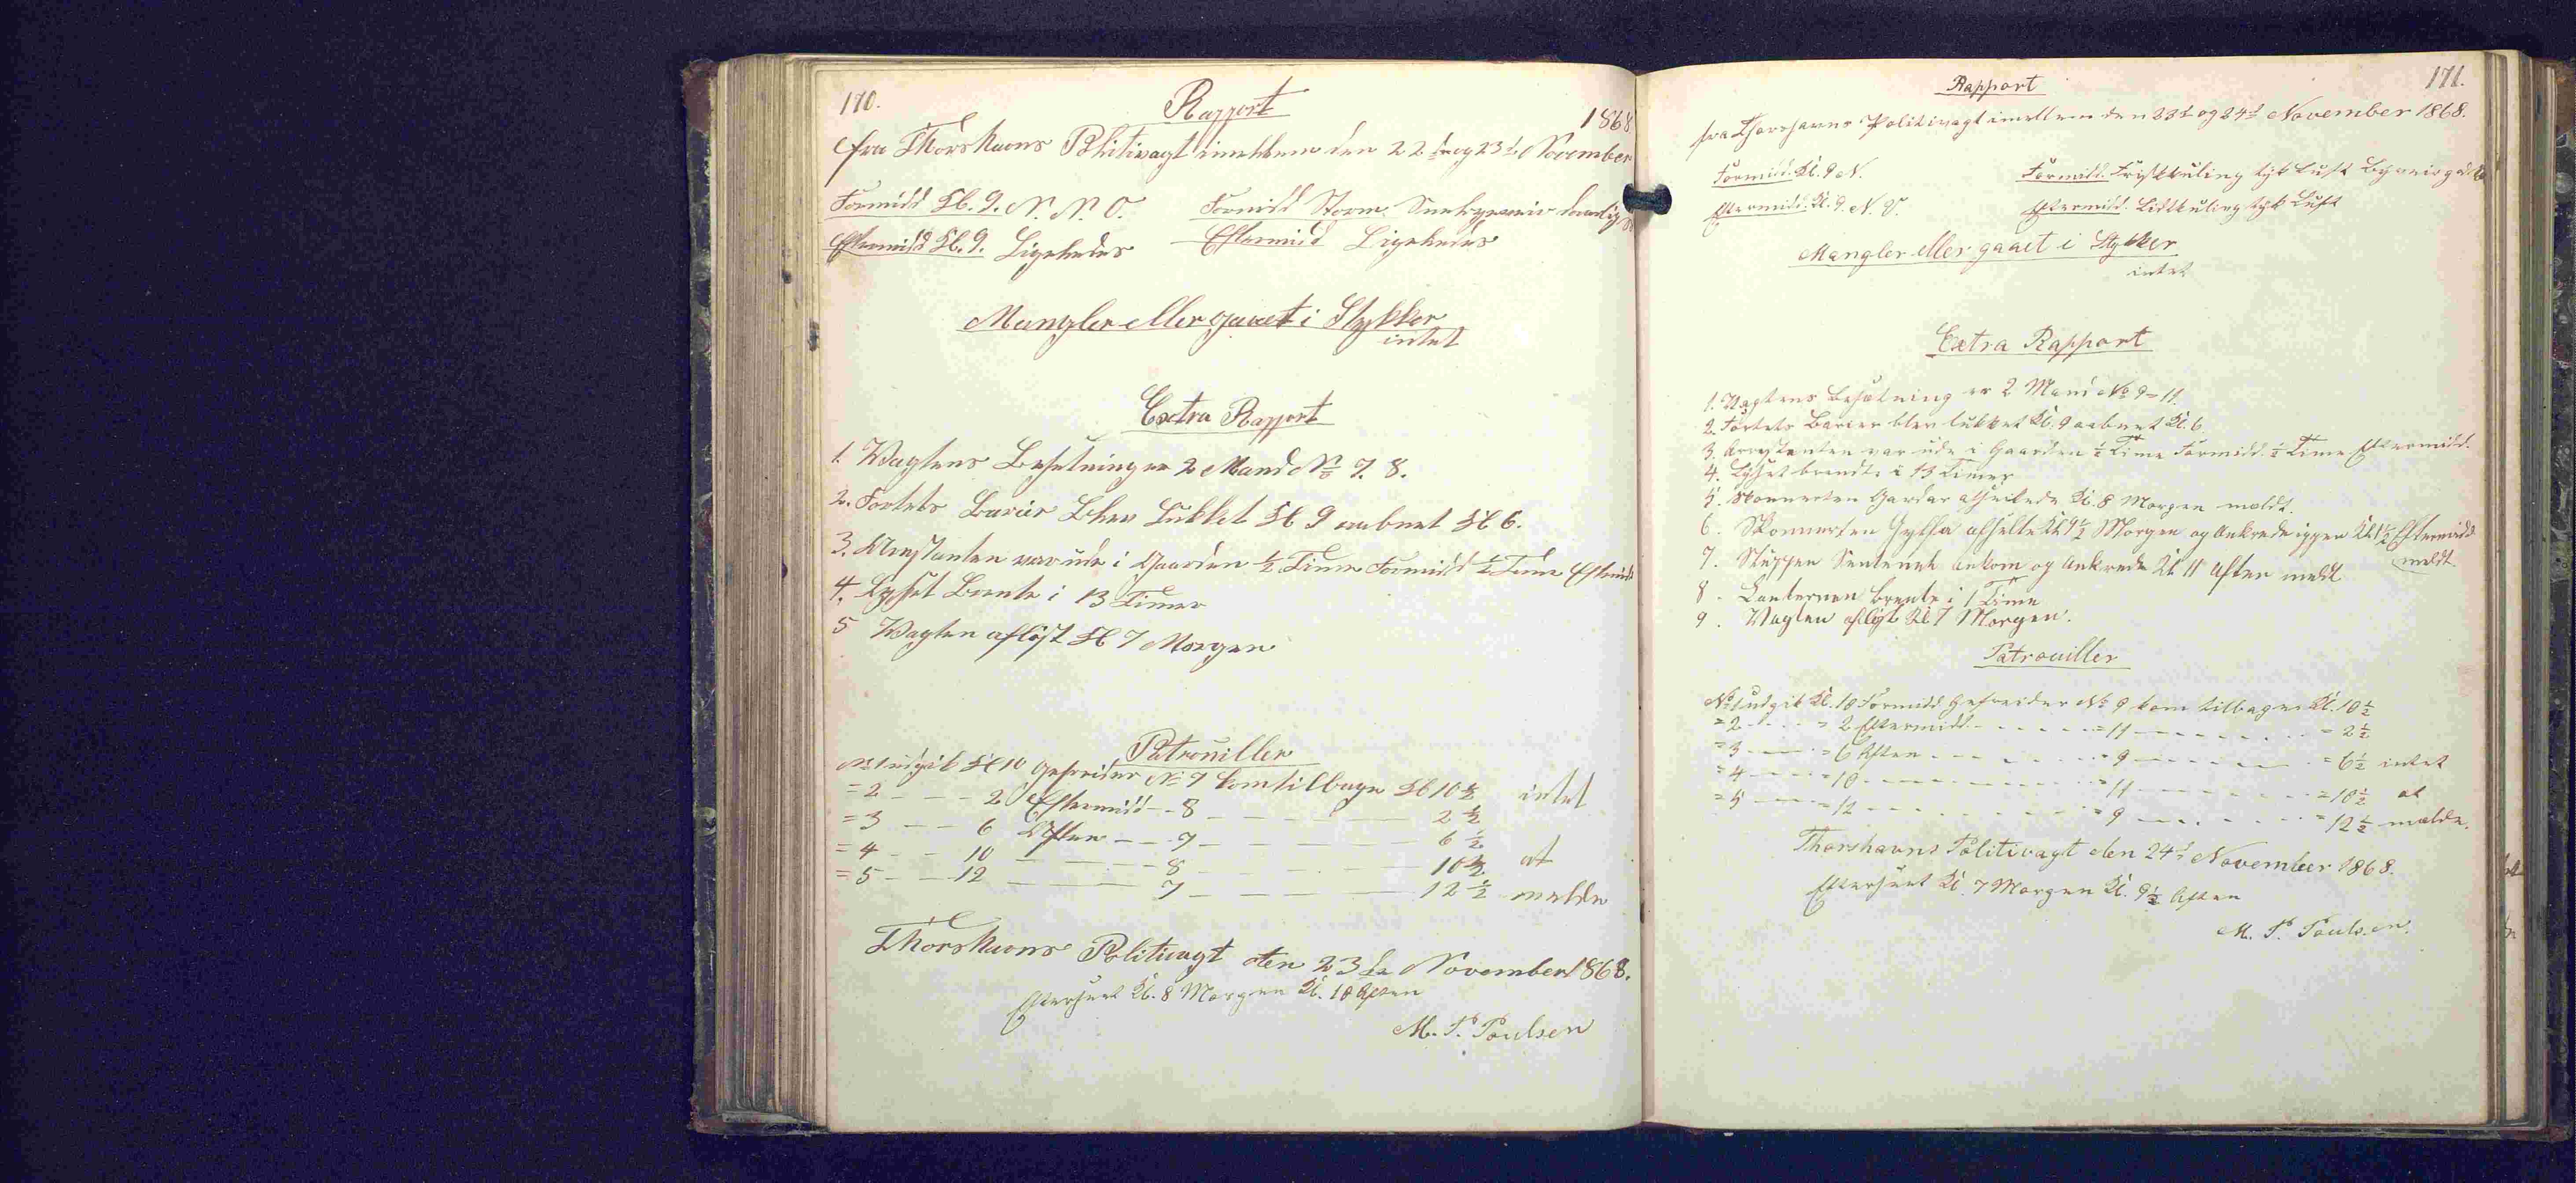 170.
Rapport
1868
fra Thorshavns Politivagt imellem den 22de og 23de November
Formidd Kl. 9. N. N. O. Formidd Storm Sneekyenis
Eftermidd Kl. 9. Ligeledes Eftermidd Ligeledes
Mangler eller gaaet i Stykker
intet
Extra Rapport
1. Vagtens Besætning er 2 Mand No 7. 8.
2. Fortets Barier blev lukket Kl 9 aabnet Kl 6.
3. Arrestanten var ude i Gaarden ½ Time Formidd ½ Time Eftermidd
4. Lyset brente i 13 Timer
5 Vagten afløst Kl 7 Morgen
Patrouiller
No 1 udgik Kl 10 Gefreider No 7 kom tilbage Kl 10½ intet
= 2 - - - 2 Eftermidd - - 8 - - - - - 2½
= 3 - - 6 Aften - - 7 - - - - - 6½
= 4 - - 10 - - - - 8 - - - - - 10½ at
= 5 - - 12 - - - - 7 - - - - - 12½ melde
Thorshavns Politivagt den 23de November 1868.
Efterseet Kl. 8 Morgen Kl. 10 Aften
M. P. Poulsen
171.
Rapport
fra Thorshavns Politivagt imellem den 23d og 24d November 1868.
Formidd. Kl. 9 N. Formidd. Friskkuling tyk Luft
Eftermidd. Kl. 9. N. V. Eftermidd. Lidtkuling tyk Luft
Mangler eller gaaet i Stykker
intet
Extra Rapport
1. Vagtens Besætning er 2 Mand No 9 = 11.
2. Fortets Barier blev lukket Kl. 9 aabnet Kl. 6
3. Arrestanten var ude i Gaarden ½ Time Formidd. ½ Time Eftermidd.
4. Lyset brendte i 13 Timer
5. Skonnerten Gardar afseilede Kl. 8 Morgen meldt.
6. Skonnerten Gytha afseilte Kl 9½ Morgen og Ankrede iggen Kl 1½ Eftermidd
meldt
7. Sluppen Sentenel ankom og Ankrede Kl 11 Aften meldt
8. Lanternen brente i 1 Time
9. Vagten afløst Kl 7 Morgen.
Patrouiller
No 1 udgik Kl. 10 Formidd Gefreider No 9 kom tilbage Kl. 10½
= 2 - - - = 2 Eftermidd. - - - - = 11 - - - - - = 2½
= 3 - - - = 6 Aften - - - - = 9 - - - - - = 6½ intet
= 4 - - - = 10 - - - - = 11 - - - - - = 10½ at
= 5 - - - = 12 - - - - = 9 - - - - - = 12½ melde.
Thorshavns Politivagt den 24d November 1868.
Efterseet Kl. 7 Morgen Kl. 9½ Aften
M. P. Poulsen.